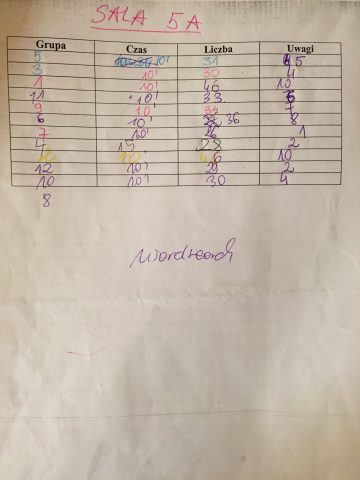 SALA 5A
Grupa Czas Liczba Uwagi
5 10' 31 5
3 10' 30 4
1 10' 46 10
11 10' 33
9 10' 7
6 10' 36 8
7 10' 1
4 15 28 2
10' 6 10
12 10' 29 2
10 10' 30 4
8
Wordsearch